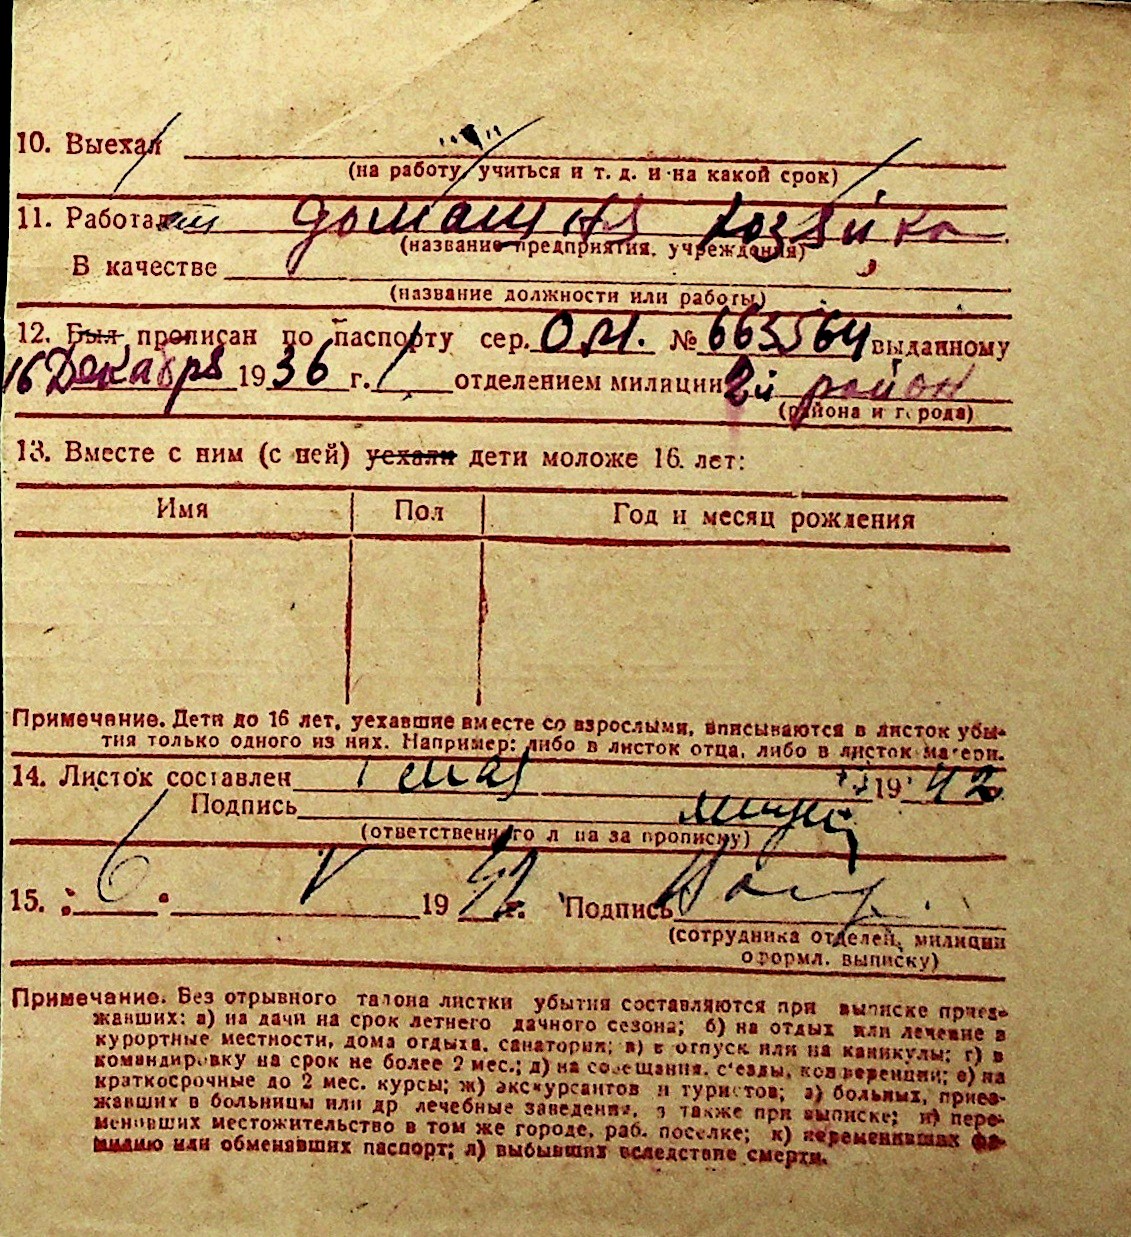 10. Выехал
(на работу, учиться и т. д. и на какой срок)
11. Работал домашняя хозяйка
(название предприятия, учреждения)
В качестве
(название должности или работы)
12. Был прописан по паспорту сер. О.М. № 663564 выданному
16 Декабря 1936 г. отделением милиции 2й район
(района и города)
13. Вместе с ним (с ней) уехали дети моложе 16 лет:
Имя Пол Год и месяц рождения
Примечание. Дети до 16 лет, уехавшие вместе со взрослыми, вписываются в листок убы-
тия только одного из них. Например: либо в листок отца, либо в листок матери.
14. Листок составлен 1 мая 1942
Подпись
(ответственного лица за прописку)
15. 6 V 1942 г. Подпись
(сотрудника отделен. милиции
оформл. выписку)
Примечание. Без отрывного талона листки убытия составляются при выписке приез-
жавших: а) на дачи на срок летнего дачного сезона; б) на отдых или лечение в
курортные местности, дома отдыха, санатории; в) в отпуск или на каникулы; г) в
командировку на срок не более 2 мес.; д) на совещания, с'езды, конференции; е) на
краткосрочные до 2 мес. курсы; ж) экскурсантов и туристов; з) больных, приез-
жавших в больницы или др лечебные заведения, а также при выписке; и) пере-
менивших местожительство в том же городе, раб. поселке; к) переменивших фа-
милию или обменявших паспорт; л) выбывших вследствие смерти.